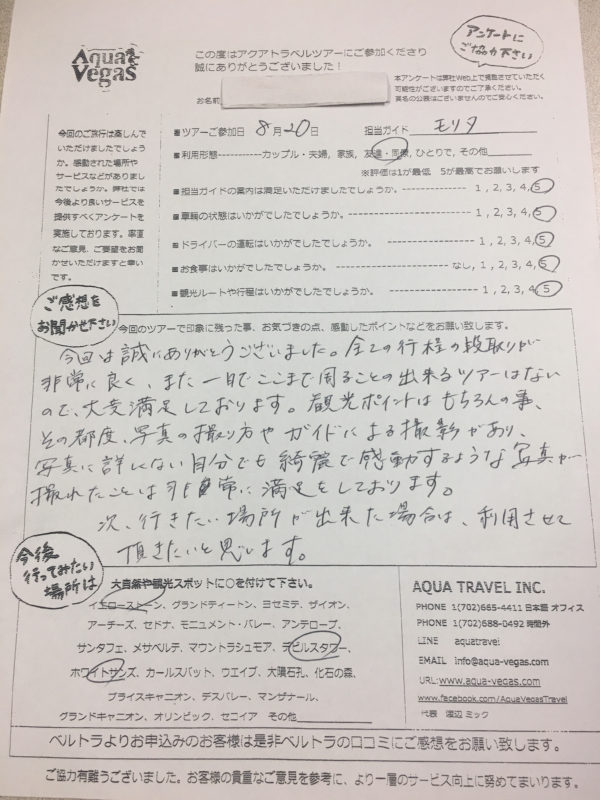 Aqua Vegas
この度はアクアトラベルツアーにご参加くださり
誠にありがとうございました！
アンケートに
ご協力下さい
本アンケートは弊社Web上で掲載させていただく
可能性がございますのでご了承ください。
実名の公表はございませんのでご安心ください。
お名前
今回のご旅行は楽しんで
いただけましたでしょう
か。感動された場所や
サービスなどがありまし
たでしょうか。弊社では
今後より良いサービスを
提供すべくアンケートを
実施しております。率直
なご意見、ご要望をお聞
かせいただけますと幸い
です。
■ツアーご参加日 8月20日 担当ガイド モリタ
■利用形態-----------カップル・夫婦, 家族, 友達・同僚, ひとりで, その他
※評価は1が最低 5が最高でお願いします
■担当ガイドの案内は満足いただけましたでしょうか。 ---------- 1 , 2, 3, 4, 5
■車輌の状態はいかがでしたでしょうか。 ---------- 1 , 2, 3, 4, 5
■ドライバーの運転はいかがでしたでしょうか。 ---------- 1 , 2, 3, 4, 5
■お食事はいかがでしたでしょうか。 ---------- なし, 1, 2, 3, 4, 5
■観光ルートや行程はいかがでしたでしょうか。 ---------- 1, 2, 3, 4, 5
ご感想を
お聞かせ下さい
今回のツアーで印象に残った事、お気づきの点、感動したポイントなどをお願い致します。
今回は誠にありがとうございました。全ての行程の段取りが
非常に良く、また一日でここまで周ることの出来るツアーはない
ので、大変満足しております。観光ポイントはもちろんの事、
その都度、写真の撮り方やガイドによる撮影があり、
写真に詳しくない自分でも綺麗で感動するような写真が
撮れたことは非常に満足をしております。
次、行きたい場所が出来た場合は、利用させて
頂きたいと思います。
今後
行ってみたい
場所は
大自然や観光スポットに○を付けて下さい。
イエローストーン、グランドティートン、ヨセミテ、ザイオン、
アーチーズ、セドナ、モニュメント・バレー、アンテロープ、
サンタフェ、メサベルデ、マウントラシュモア、デビルスタワー、
ホワイトサンズ、カールスバット、ウエイブ、大隕石孔、化石の森、
ブライスキャニオン、デスバレー、マンザナール、
グランドキャニオン、オリンピック、セコイア その他
AQUA TRAVEL INC.
PHONE 1(702)665-4411 日本語 オフィス
PHONE 1(702)688-0492 時間外
LINE aquatravel
EMAIL info@aqua-vegas.com
URL:www.aqua-vegas.com
www.facebook.com/AquaVegasTravel
代表 渡辺 ミック
ベルトラよりお申込みのお客様は是非ベルトラの口コミにご感想をお願い致します。
ご協力有難うございました。お客様の貴重なご意見を参考に、より一層のサービス向上に努めてまいります。